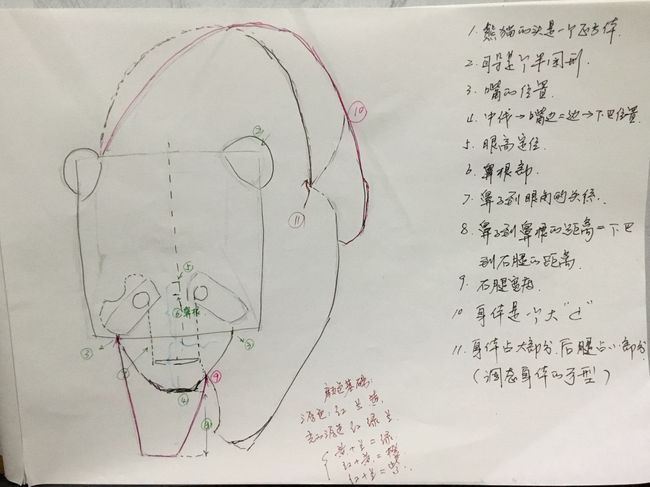 1. 熊猫的头是一个正方体.
2. 耳朵是个半圆形.
3. 嘴的位置.
4. 中线→嘴边=边→下巴位置
5. 眼高定位.
6. 鼻根部.
7. 鼻子到眼角的关系.
8. 鼻子到鼻根的距离=下巴
到右腿的距离.
9. 右腿宽窄.
10 身体是个大"C"
11. 身体占大部分.后腿占小部分
(调态身体的子型)
⑩
②
⑪
⑤
⑥ 鼻根
③
③
⑦
④
⑨
⑧
颜色基础:
三原色: 红 兰 黄.
光的三原色 红 绿 兰
黄+兰=绿.
红+黄=橙
红+兰=紫.